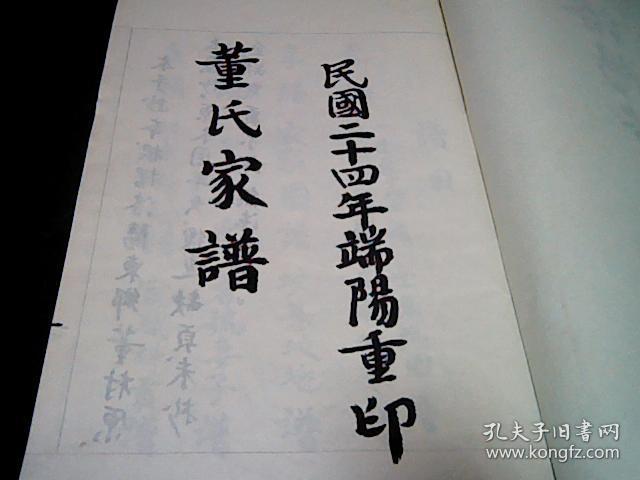 民國二十四年端陽重印
董氏家譜
孔夫子旧书网
www.kongfz.com